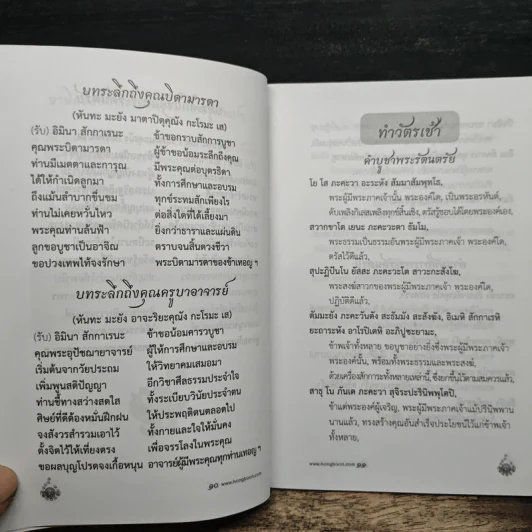 บทระลึกถึงคุณบิดามารดา
(หันทะ มะยัง มาตาปิตุคุณัง กะโรมะ เส)
(รับ) อิมินา สักกาเรนะ ข้าขอกราบสักการบูชา
คุณพระบิดามารดา ผู้ข้าขอน้อมระลึกถึงคุณ
ท่านมีเมตตาและการุณ มีพระคุณต่อบุตรธิดา
ได้ให้กำเนิดลูกมา ทั้งการศึกษาและอบรม
ถึงแม้นลำบากขื่นขม ทุกข์ระทมสักเพียงไร
ท่านไม่เคยหวั่นไหว ต่อสิ่งใดที่ได้เลี้ยงมา
พระคุณท่านล้นฟ้า ยิ่งกว่าธาราและแผ่นดิน
ลูกขอบูชาเป็นอาจิณ ตราบจนสิ้นดวงชีวา
ขอปวงเทพให้จงรักษา พระบิดามารดาของข้าเทอญ ฯ
บทระลึกถึงคุณครูบาอาจารย์
(หันทะ มะยัง อาจะริยะคุณัง กะโรมะ เส)
(รับ) อิมินา สักกาเรนะ ข้าขอน้อมคารวบูชา
คุณพระอุปัชฌายาจารย์ ผู้ให้การศึกษาและอบรม
เริ่มต้นจากวัยประถม ให้วิทยาคมเสมอมา
เพิ่มพูนสติปัญญา อีกวิชาศีลธรรมประจำใจ
ท่านชี้ทางสว่างสดใส ทั้งระเบียบวินัยประจำตน
ศิษย์ที่ดีต้องหมั่นฝึกฝน ให้ประพฤติตนตลอดไป
จงสังวรสำรวมเอาไว้ ทั้งกายและใจให้มั่นคง
ตั้งจิตไว้ให้เที่ยงตรง เพื่อจรรโลงในพระคุณ
ขอผลบุญโปรดจงเกื้อหนุน อาจารย์ผู้มีพระคุณทุกท่านเทอญ ฯ
๑๐ www.horngboon.com
ทำวัตรเช้า
คำบูชาพระรัตนตรัย
โย โส ภะคะวา อะระหัง สัมมาสัมพุทโธ,
พระผู้มีพระภาคเจ้านั้น พระองค์ใด, เป็นพระอรหันต์,
ดับเพลิงกิเลสเพลิงทุกข์สิ้นเชิง, ตรัสรู้ชอบได้โดยพระองค์เอง,
สวากขาโต เยนะ ภะคะวะตา ธัมโม,
พระธรรมเป็นธรรมอันพระผู้มีพระภาคเจ้า พระองค์ใด,
ตรัสไว้ดีแล้ว,
สุปะฏิปันโน ยัสสะ ภะคะวะโต สาวะกะสังโฆ,
พระสงฆ์สาวกของพระผู้มีพระภาคเจ้า พระองค์ใด,
ปฏิบัติดีแล้ว,
ตัมมะยัง ภะคะวันตัง สะธัมมัง สะสังฆัง, อิเมหิ สักกาเรหิ
ยะถาระหัง อาโรปิเตหิ อะภิปูชะยามะ,
ข้าพเจ้าทั้งหลาย ขอบูชาอย่างยิ่งซึ่งพระผู้มีพระภาคเจ้า
พระองค์นั้น, พร้อมทั้งพระธรรมและพระสงฆ์,
ด้วยเครื่องสักการะทั้งหลายเหล่านี้, อันยกขึ้นไว้ตามสมควรแล้ว,
สาธุ โน ภันเต ภะคะวา สุจิระปะรินิพพุโตปิ,
ข้าแต่พระองค์ผู้เจริญ, พระผู้มีพระภาคเจ้าแม้ปรินิพพาน
นานแล้ว, ทรงสร้างคุณอันสำเร็จประโยชน์ไว้แก่ข้าพเจ้า
ทั้งหลาย,
www.horngboon.com ๑๑